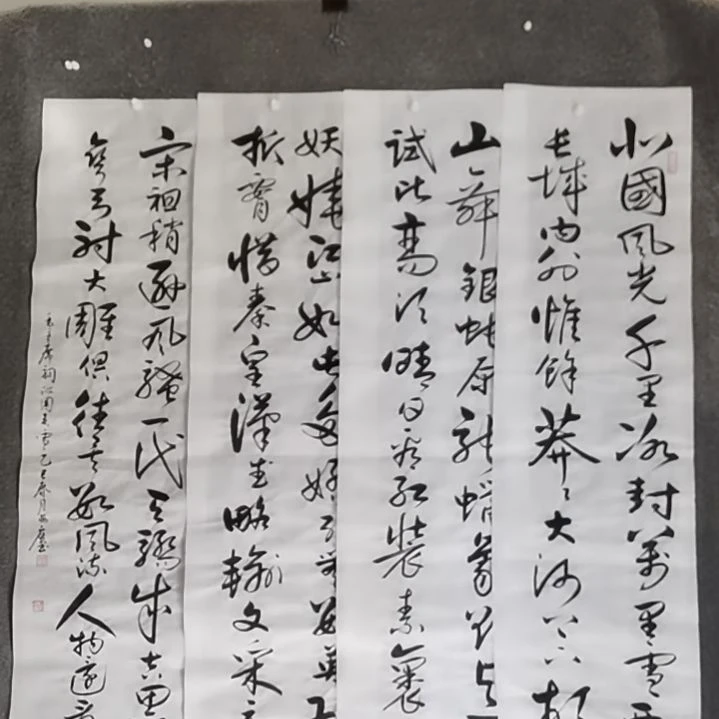 北國風光千里冰封萬里雪
長城内外惟餘莽〻大河上下頓
山舞銀蛇原馳蠟象欲與
試比高須晴日看紅裝素裹
妖嬈江山如此多嬌引無數英
折腰惜秦皇漢武略輸文采
宋祖稍遜風騷一代天驕成吉思
彎弓射大雕俱往矣數風流人物還看
毛主席詞沁園春雪乙巳春月